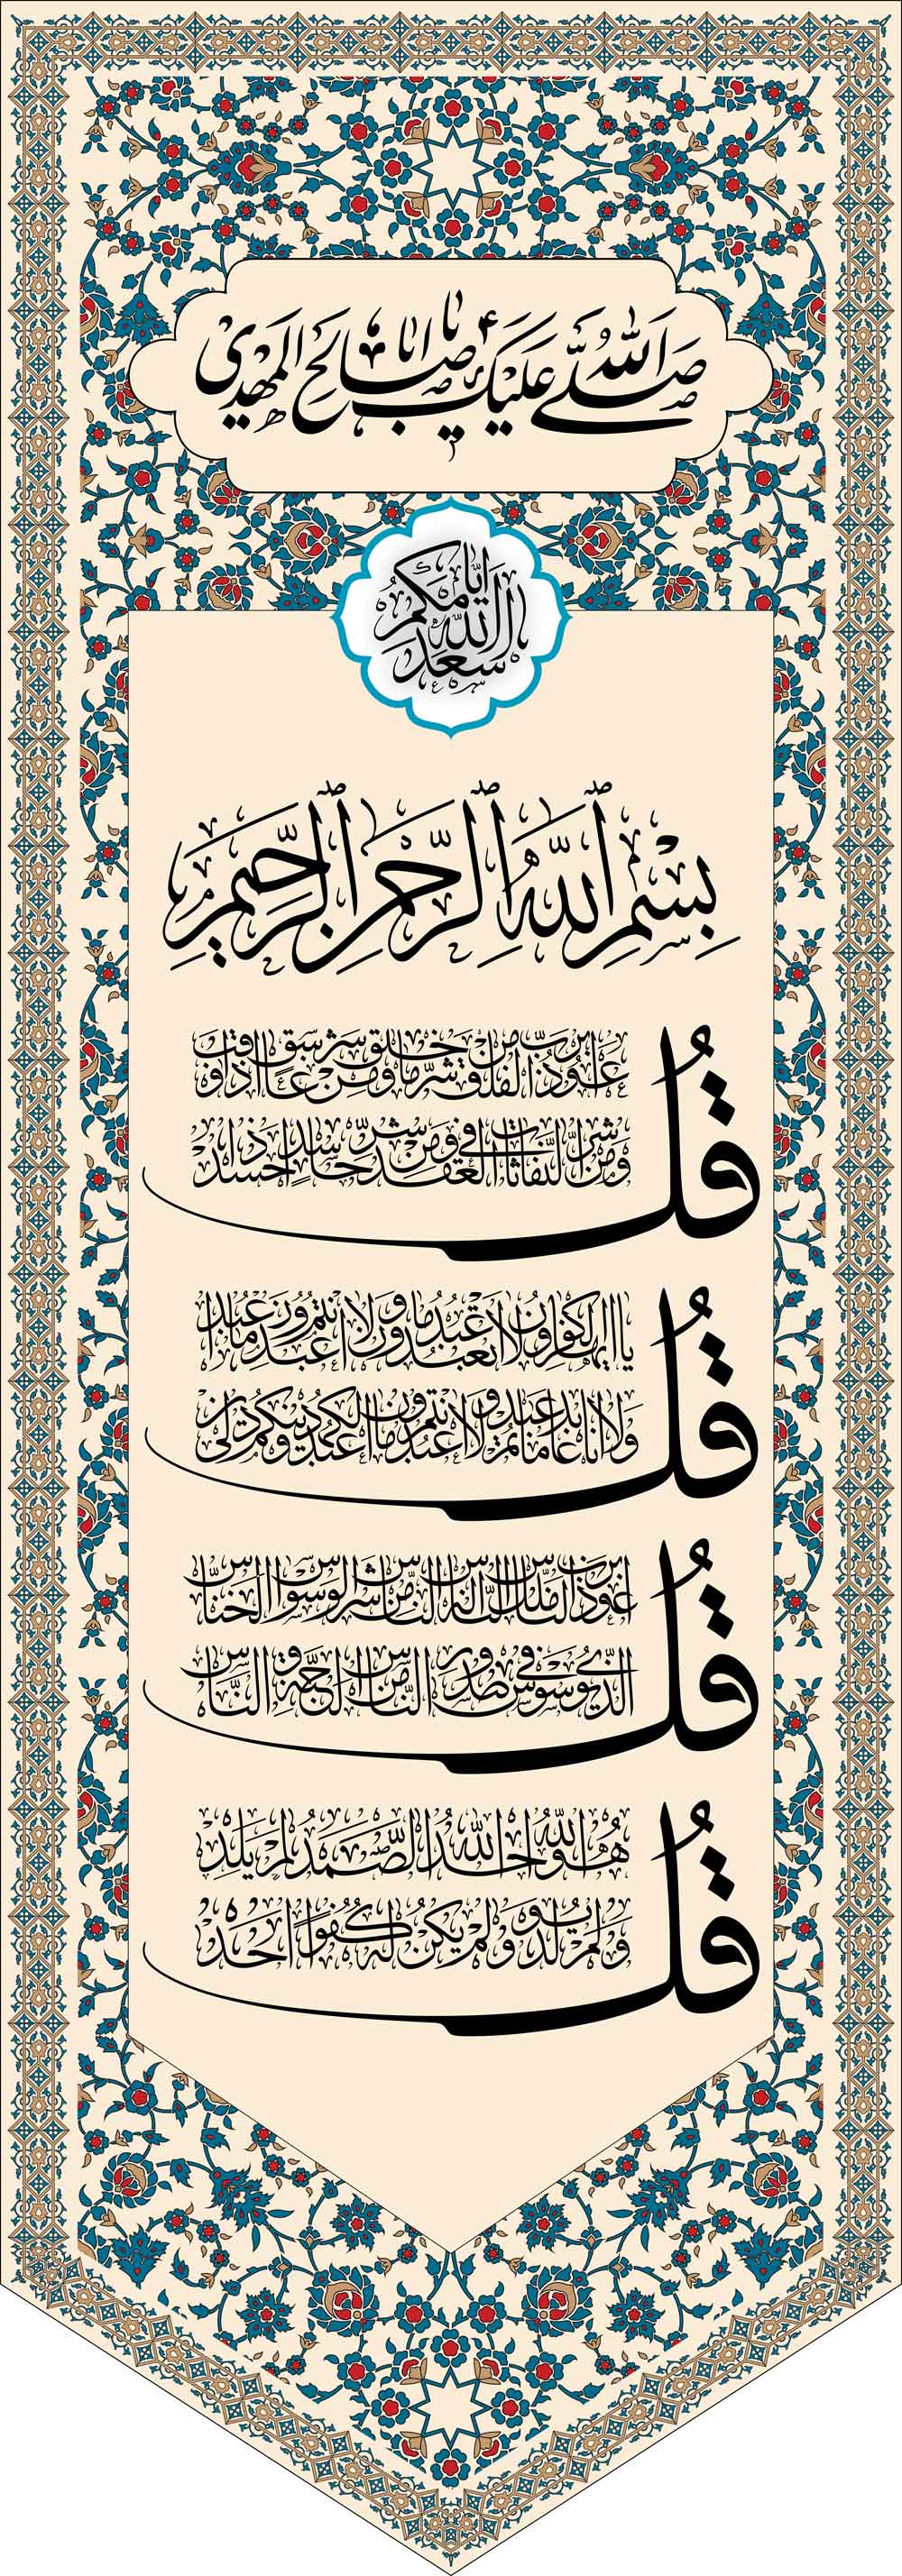 صَلَّی اللهُ عَلَیْکَ یا اباصالِحَ المَهدی
اَسعَدَ اللهُ اَیّامَکُم
بِسْمِ ٱللَّهِ ٱلرَّحْمَنِ ٱلرَّحِيمِ
قُلْ
اعوذ برب الفلق من شر ما خلق و من شر غاسق اذا وقب
و من شر النفاثات فی العقد و من شر حاسد اذا حسد
قُلْ
یا ایها الکافرون لا اعبد ما تعبدون ولا انتم عابدون ما اعبد
ولا انا عابد ما عبدتم ولا انتم عابدون ما اعبد لکم دینکم ولی دین
قُلْ
اعوذ برب الناس ملک الناس اله الناس من شر الوسواس الخناس
الذی یوسوس فی صدور الناس من الجنة و الناس
قُلْ
هو الله احد الله الصمد لم یلد
و لم یولد و لم یکن له کفوا احد